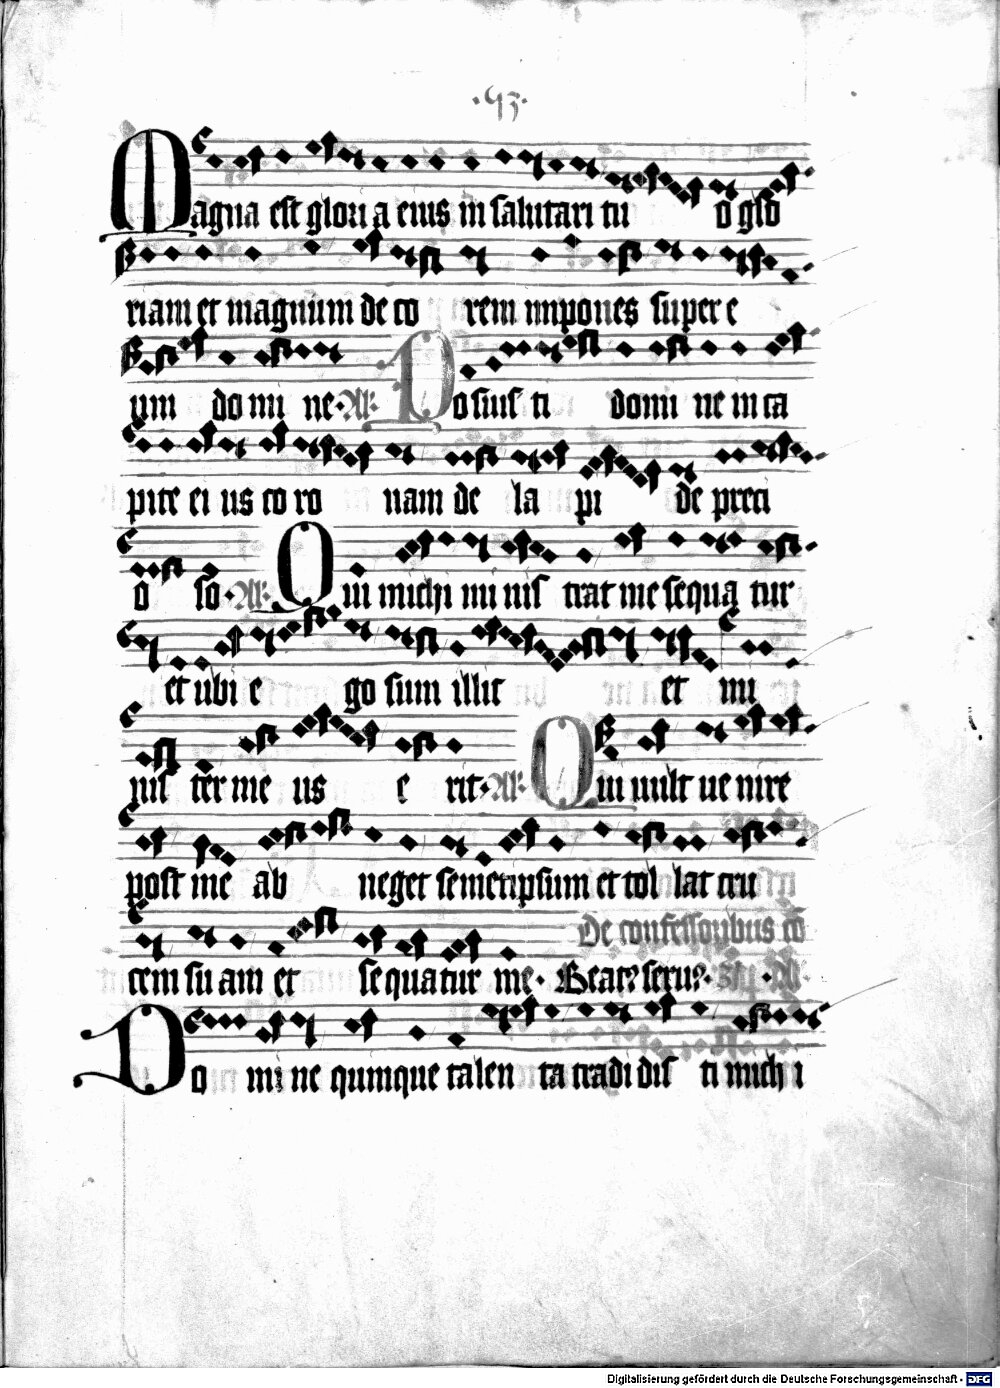 ·93·
Magna est glori a eius in salutari tu o glo
riam et magnum de co rem impones super e
um do mi ne· Al· Posuis ti domi ne in ca
pite ei us co ro nam de la pi de preci
o so· Al· Qui michi mi nis trat me sequa tur
et ubi e go sum illic et mi
nis ter me us e rit· Al· Qui uult ue nire
post me ab neget semetipsum et tol lat cru
De confessoribus co
cem su am et sequatur me· Beat? seru?·
Do mi ne quinque talen ta tradi dis ti mich i
Digitalisierung gefördert durch die Deutsche Forschungsgemeinschaft - DFG